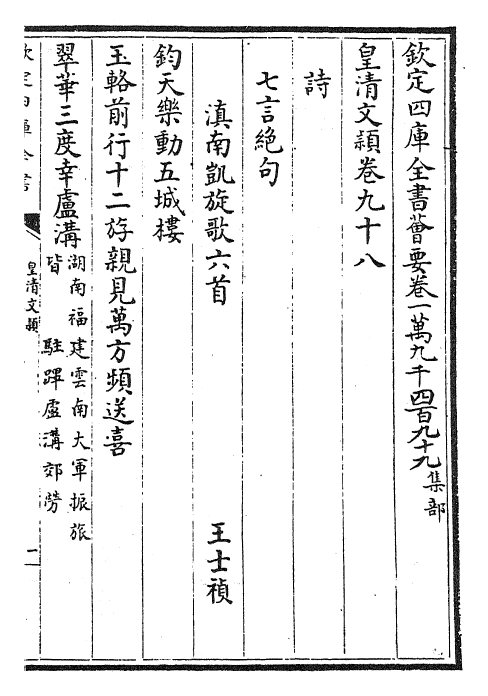 欽定四庫全書薈要卷一萬九千四百九十九 集部
皇清文穎卷九十八
詩
七言絶句
滇南凱旋歌六首 王士禎
鈞天樂動五城樓
玉輅前行十二斿親見萬方頻送喜
翠華三度幸盧溝湖南福建雲南大軍振旅皆駐蹕盧溝郊勞
皇清文穎